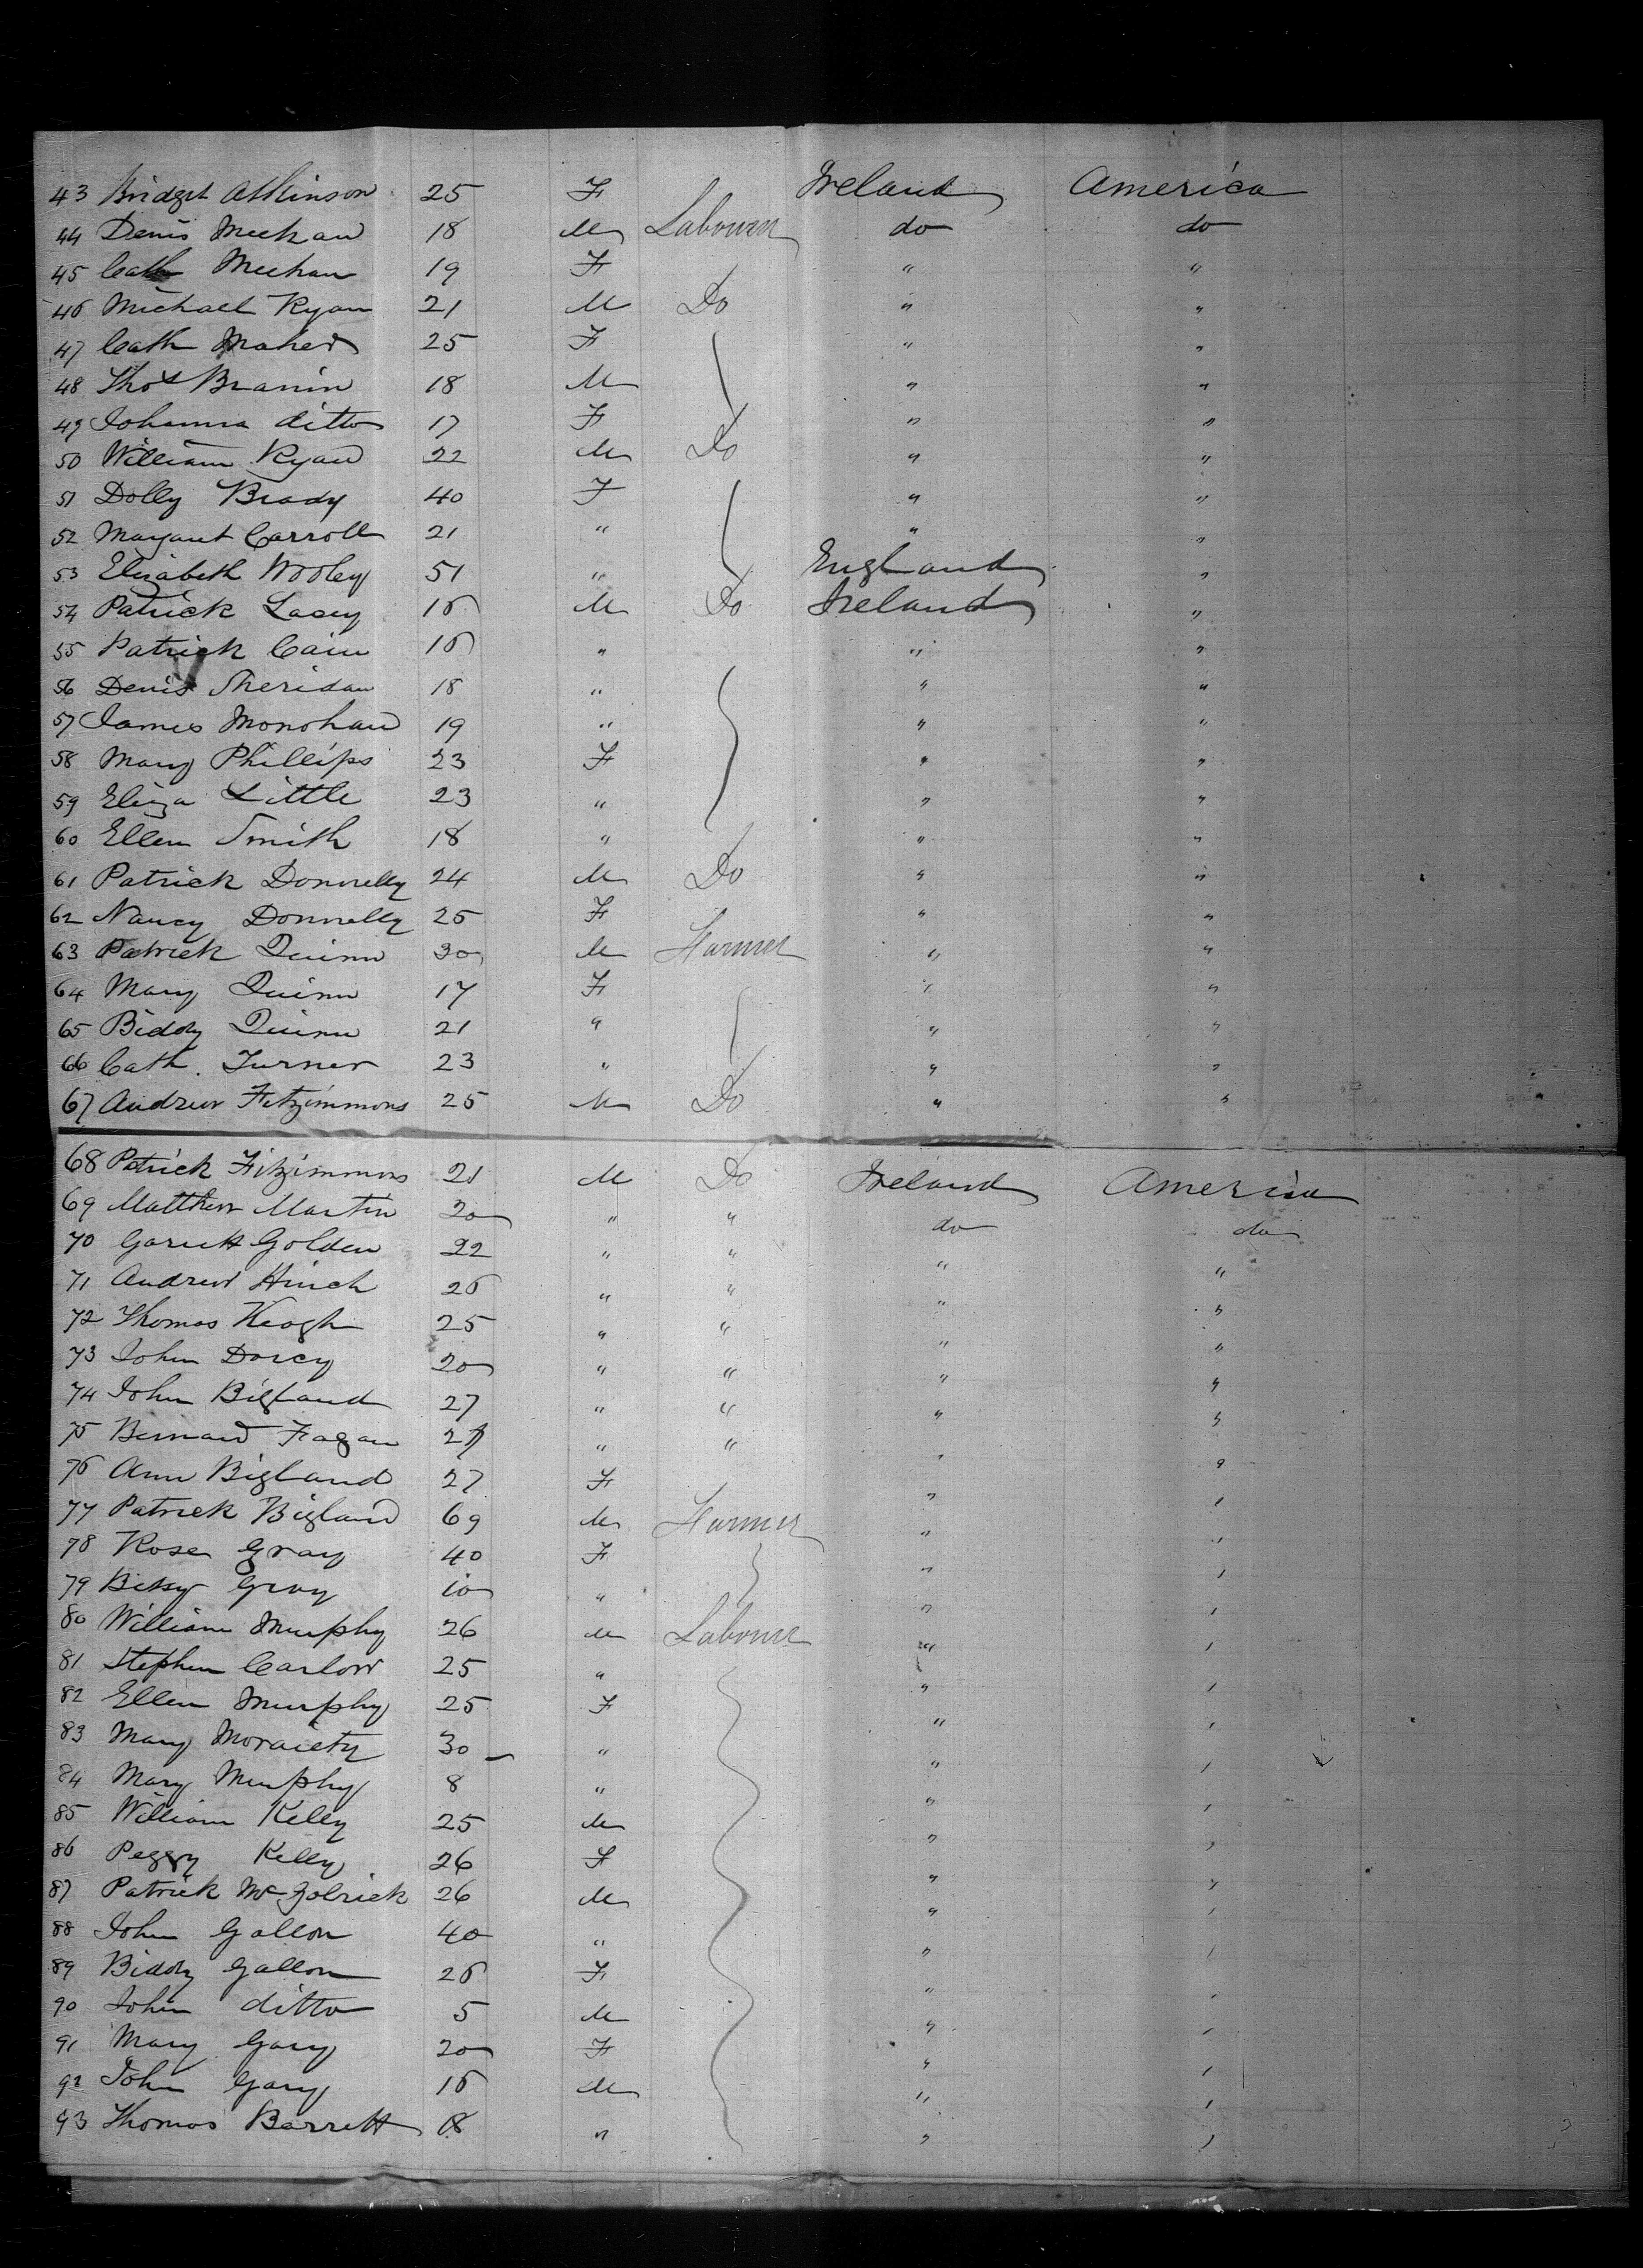 43 Bridget Atkinson 25 F Ireland America
44 Denis Meehan 18 M Labourer do do
45 Cath Meehan 19 F " "
46 Michael Ryan 21 M Do " "
47 Cath Maher 25 F " "
48 Thos Brannin 18 M " "
49 Johanna ditto 17 F " "
50 William Ryan 22 M Do " "
51 Dolly Brady 40 F " "
52 Margaret Carroll 21 " " "
53 Elizabeth Wooley 51 " England "
54 Patrick Lacey 16 M Do Ireland "
55 Patrick Cain 16 " " "
56 Denis Sheridan 18 " " "
57 James Monohan 19 " " "
58 Mary Phillips 23 F " "
59 Eliza Little 23 " " "
60 Ellen Smith 18 " " "
61 Patrick Donnelly 24 M Do " "
62 Nancy Donnelly 25 F " "
63 Patrick Quinn 30 M Farmer " "
64 Mary Quinn 17 F " "
65 Biddy Quinn 21 " " "
66 Cath. Turner 23 " " "
67 Andrew Fitzimmons 25 M Do " "
68 Patrick Fitzimmons 21 M Do Ireland America
69 Matthew Martin 20 " " do do
70 Garrett Golden 22 " " " "
71 Andrew Hinch 26 " " " "
72 Thomas Keogh 25 " " " "
73 John Darcy 20 " " " "
74 John Bigland 27 " " " "
75 Bernard Fagan 27 " " " "
76 Ann Bigland 27 F " "
77 Patrick Bigland 69 M Farmer " "
78 Rose Gray 40 F " "
79 Betsy Gray 10 " " "
80 William Murphy 26 M Labourer " "
81 Stephen Carlow 25 " " "
82 Ellen Murphy 25 F " "
83 Mary Moraiety 30 " " "
84 Mary Murphy 8 " " "
85 William Kelly 25 M " "
86 Peggy Kelly 26 F " "
87 Patrick Mc 26 M " "
88 John Gallon 40 " " "
89 Biddy Gallon 26 F " "
90 John ditto 5 M " "
91 Mary Gary 20 F " "
92 John Gary 16 M " "
93 Thomas Barrett 18 " " "